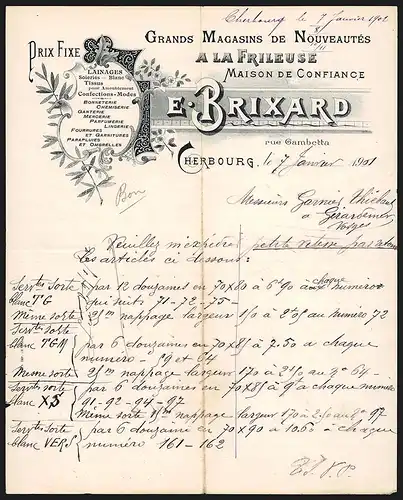 Cherbourg le 7 Janvier 1902
GRANDS MAGASINS DE NOUVEAUTÉS
PRIX FIXE
A LA FRILEUSE
MAISON DE CONFIANCE
LAINAGES
Soieries - Blanc
Tissus
pour Ameublement
Confections-Modes
BONNETERIE
CHEMISERIE
GANTERIE
MERCERIE
PARFUMERIE
LINGERIE
FOURRURES
ET GARNITURES
PARAPLUIES
ET OMBRELLES
E. BRIXARD
rue Gambetta
CHERBOURG, le 7 Janvier 1901
Bon
Messieurs Garnier Thiébaut
à Gérardmer
Vosges
Veuillez m'expédier petite vitesse par retour
les articles ci dessous:
Servtes sorte par 12 douzaines en 70x80 à 6f90 à chaque numéros
blanc TG qui suit 71-72-75-
Même sorte nappage largeur à au numéro 72
Servtes sorte
blanc TGM par 6 douzaines en 70x85 à 7.50 à chaque
numéro 59 et 64
Même sorte nappage largeur 170 à au no 64-
Servtes sorte par 6 douzaines en 70x85 à 9f à chaque numéro
blanc XS 91-92-94-97
Même sorte nappage largeur 170 à 2.50 au no 97
Servtes sorte par 6 douzaines en 70x90 à 10.50 à chaque
blanc numéro 161-162
T.S.V.P.